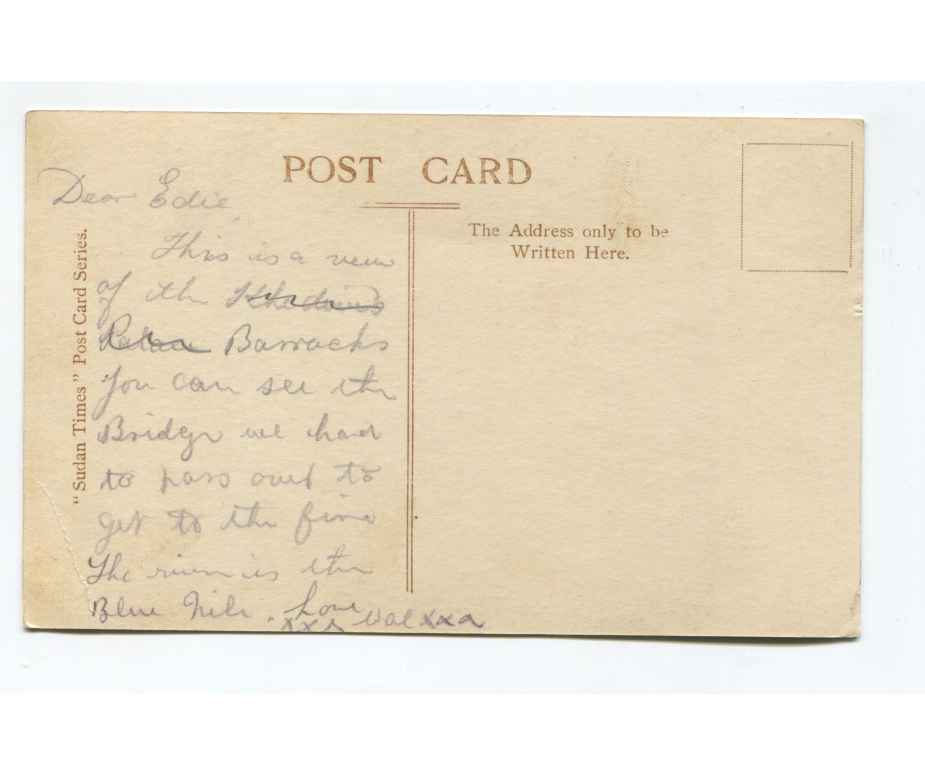 POST CARD
The Address only to be
Written Here.
"Sudan Times" Post Card Series.
Dear Edie
This is a view
of the
Barracks
You can see the
Bridge we had
to pass over to
get to the
The river is the
Blue Nile. Love
xxx Val xxx